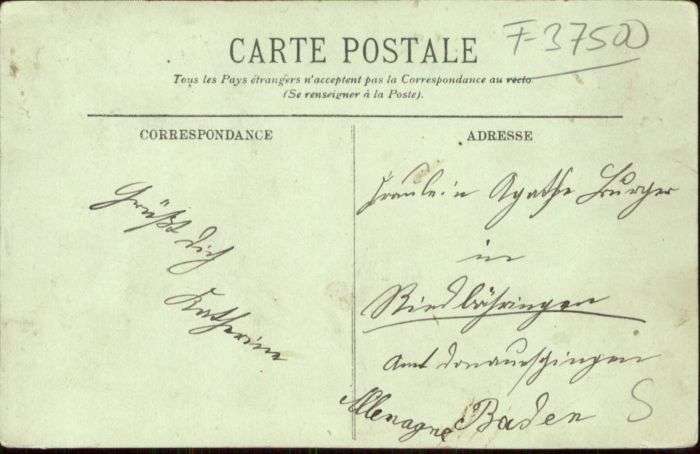 CARTE POSTALE
F-37500
Tous les Pays étrangers n'acceptent pas la Correspondance au recto.
(Se renseigner à la Poste).
CORRESPONDANCE
ADRESSE
Grüßt dich
Katherine
Fräulein Agathe Burger
in
Riedböhringen
Amt Donaueschingen
Allemagne Baden
S